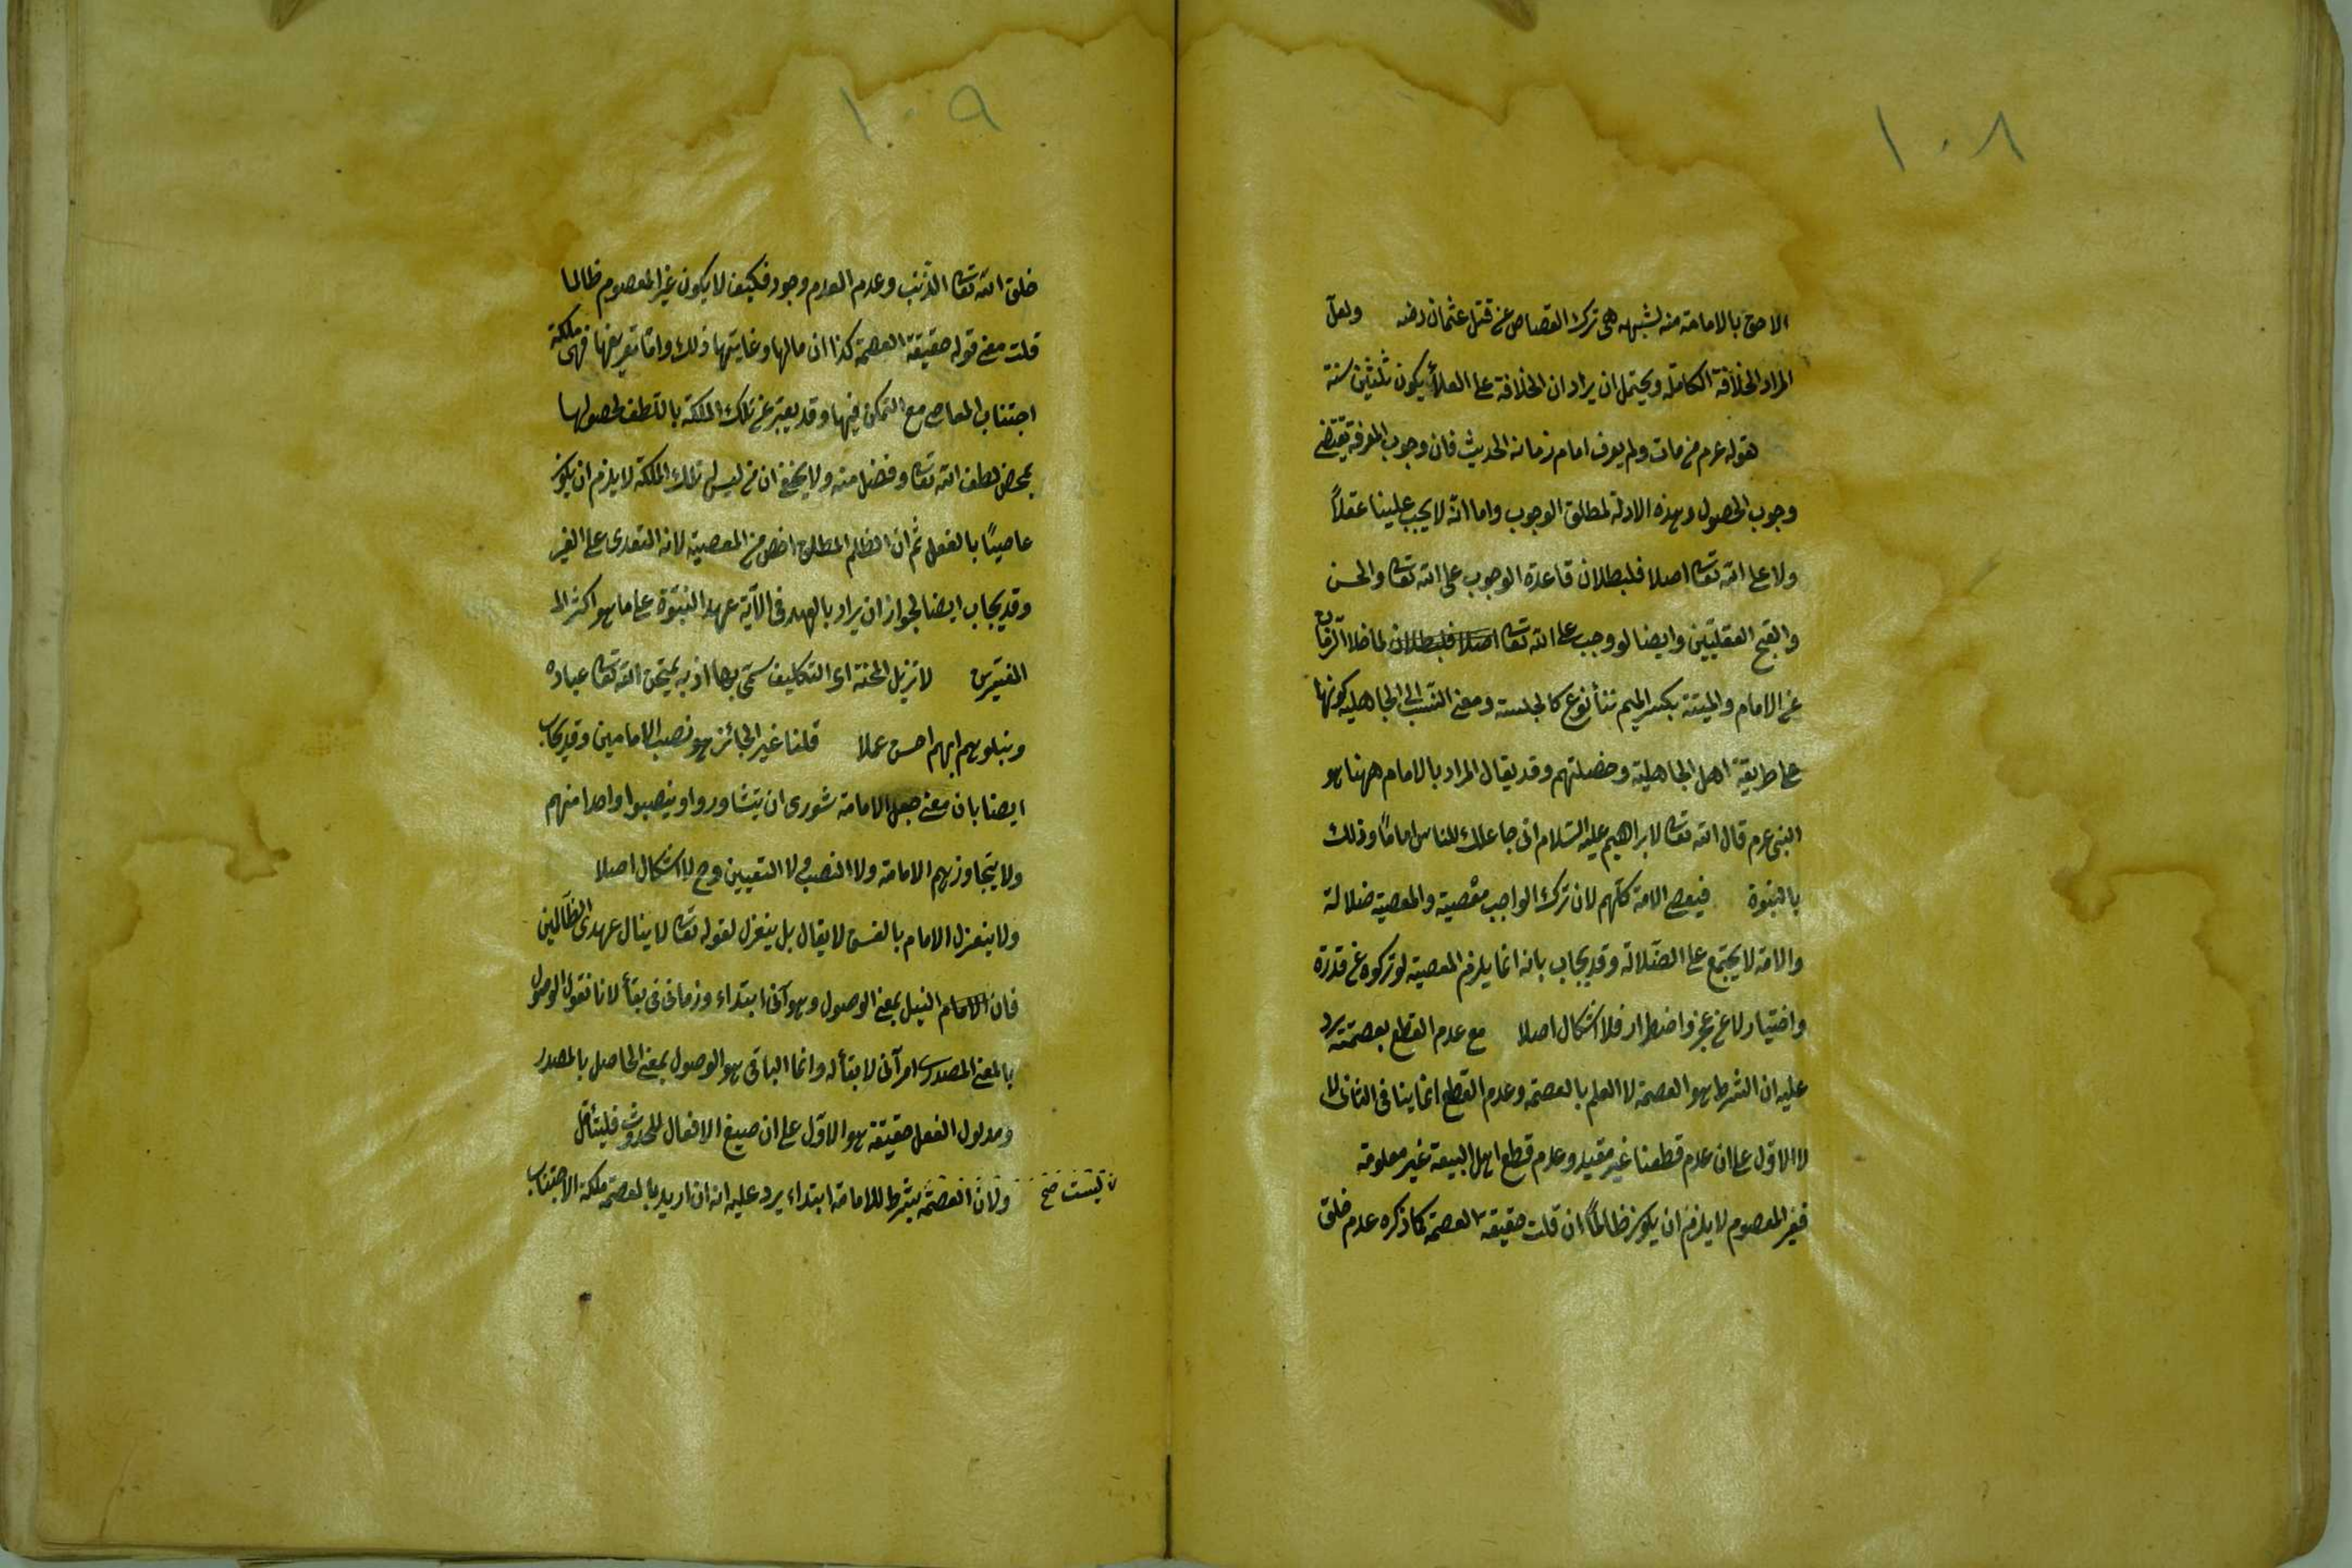 ١٠٨
الاحق بالامامة منه لشبهه هى ترك القصاص عن قتل عثمان رضه ولعل
المراد الخلافة الكاملة ويحتمل ان يراد ان الخلافة على الولاء يكون ثلثين سنة
هقوله عم من مات ولم يعرف امام زمانه الحديث فان وجوب المعرفة يقتضى
وجوب الحصول وهذه الادلة لمطلق الوجوب واما انه لا يجب علينا عقلاً
ولا على الله تعالى اصلا فلبطلان قاعدة الوجوب على الله تعالى والحسن
والقبح العقليّين وايضا لو وجب على الله تعالى اصلا فلبطلان لما خلا الزمان
عن الامام والميتة بكسر الميم بناء نوع كالجلسة ومعنى النسب الى الجاهلية كونها
على طريقة اهل الجاهلية وخصلتهم وقد يقال المراد بالامام ههنا هو
النبى عم قال الله تعالى لابراهيم عليه السلام انى جاعلك للناس اماما وذلك
بالنبوة فيعصى الامة كلهم لان ترك الواجب معصية والمعصية ضلالة
والامة لا يجتمع على الضلالة وقد يجاب بانه انما يلزم المعصية لو تركوه عن قدرة
واختيار لا عن عجز واضطرار فلا اشكال اصلا مع عدم القطع بعصمته يرد
عليه ان الشرط هو العصمة لا العلم بالعصمة وعدم القطع انما ينافى الثانى لا
لا الاول على ان عدم قطعنا غير مقيد وعدم قطع اهل البيعة غير معلومة
فغير المعصوم لا يلزم ان يكون ظالماً ان قلت حقيقة العصمة كما ذكره عدم خلق
١٠٩
خلق الله تعالى الذنب وعدم العدم وجود فكيف لا يكون غير المعصوم ظالما
قلت معنى قوله حقيقة العصمة كذا ان مالها وغايتها ذلك واما تعريفها فهى ملكة
اجتناب المعاصى مع التمكن فيها وقد يعبر عن تلك الملكة باللطف لحصولها
بمحض لطف الله تعالى وفضل منه ولا يخفى ان من ليس له تلك الملكة لا يلزم ان يكون
عاصيًا بالفعل ثم ان الظلم المطلق اخص من المعصية لانه التعدى على الغير
وقد يجاب ايضا لجواز ان يراد بالعهد فى الآية عهد النبوة على ما هو اكثر الـ
المفسرين لا تزيل المحنة اى التكليف سمى بها اذ به يمتحن الله تعالى عباده
ويبلوهم ايهم احسن عملا قلنا غير الجائز هو نصب الامامين وقد يجاب
ايضا بان معنى جعل الامامة شورى ان يتشاوروا وينصبوا واحدا منهم
ولا يتجاوزهم الامامة ولا النصب ولا التعيين وح لا اشكال اصلا
ولا ينعزل الامام بالفسق لا يقال بل ينعزل لقوله تعالى لا ينال عهدى الظالمين
فان النيل بمعنى الوصول وهو آنى ابتداء وزمانى فى بقاء لانا نقول الوصول
بالمعنى المصدرى امر آنى لا بقاء له وانما الباقى هو الوصول بمعنى الحاصل بالمصدر
ومدلول الفعل حقيقة هو الاول على ان صيغ الافعال للحدوث فليتأمل
ولان العصمة بشرط للامامة ابتداء يرد عليه انه ان اريد بالعصمة ملكة الاجتناب
ليست صح